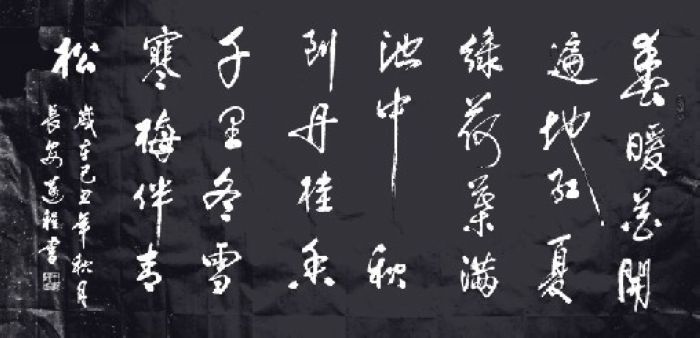 春暖花開
遍地紅夏
綠荷葉滿
池中秋
到丹桂香
千里冬雪
寒梅伴青
松
歲在己丑年秋月
長安
書